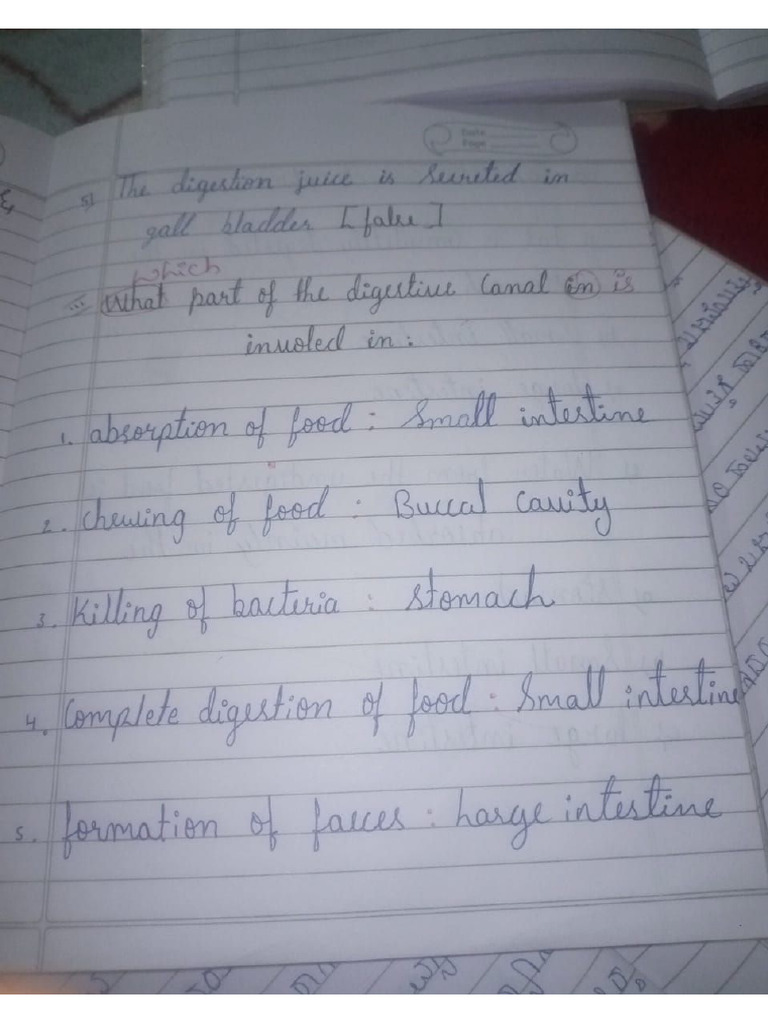 Date
Page
5) The digestion juice is secreted in
gall bladder [false]
which
What part of the digestive canal in is
involed in:
1. absorption of food: Small intestine
2. chewing of food: Buccal cavity
3. Killing of bacteria: Stomach
4. Complete digestion of food: Small intestine
5. formation of faeces: Large intestine